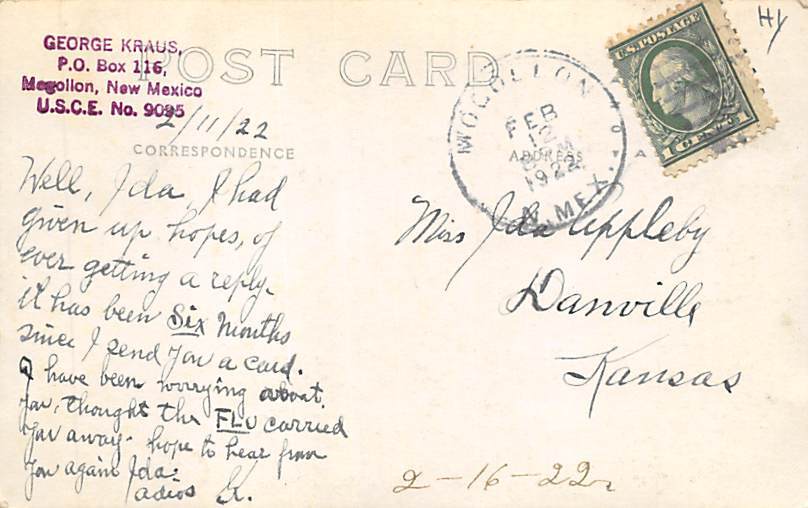 GEORGE KRAUS,
P.O. Box 116,
Mogollon, New Mexico
U.S.C.E. No. 9095
POST CARD
2/11/22
CORRESPONDENCE
Well, Ida, I had
given up hopes, of
ever getting a reply.
it has been Six months
since I send you a card.
I have been worrying about
you, thought the FLU carried
you away. hope to hear from
you again Ida.
adios K.
MOGOLLON
FEB
12
M
1922
N. MEX.
ADDRESS
U.S. POSTAGE
1 CENT 1
Hy
Miss Ida Appleby
Danville
Kansas
2-16-22